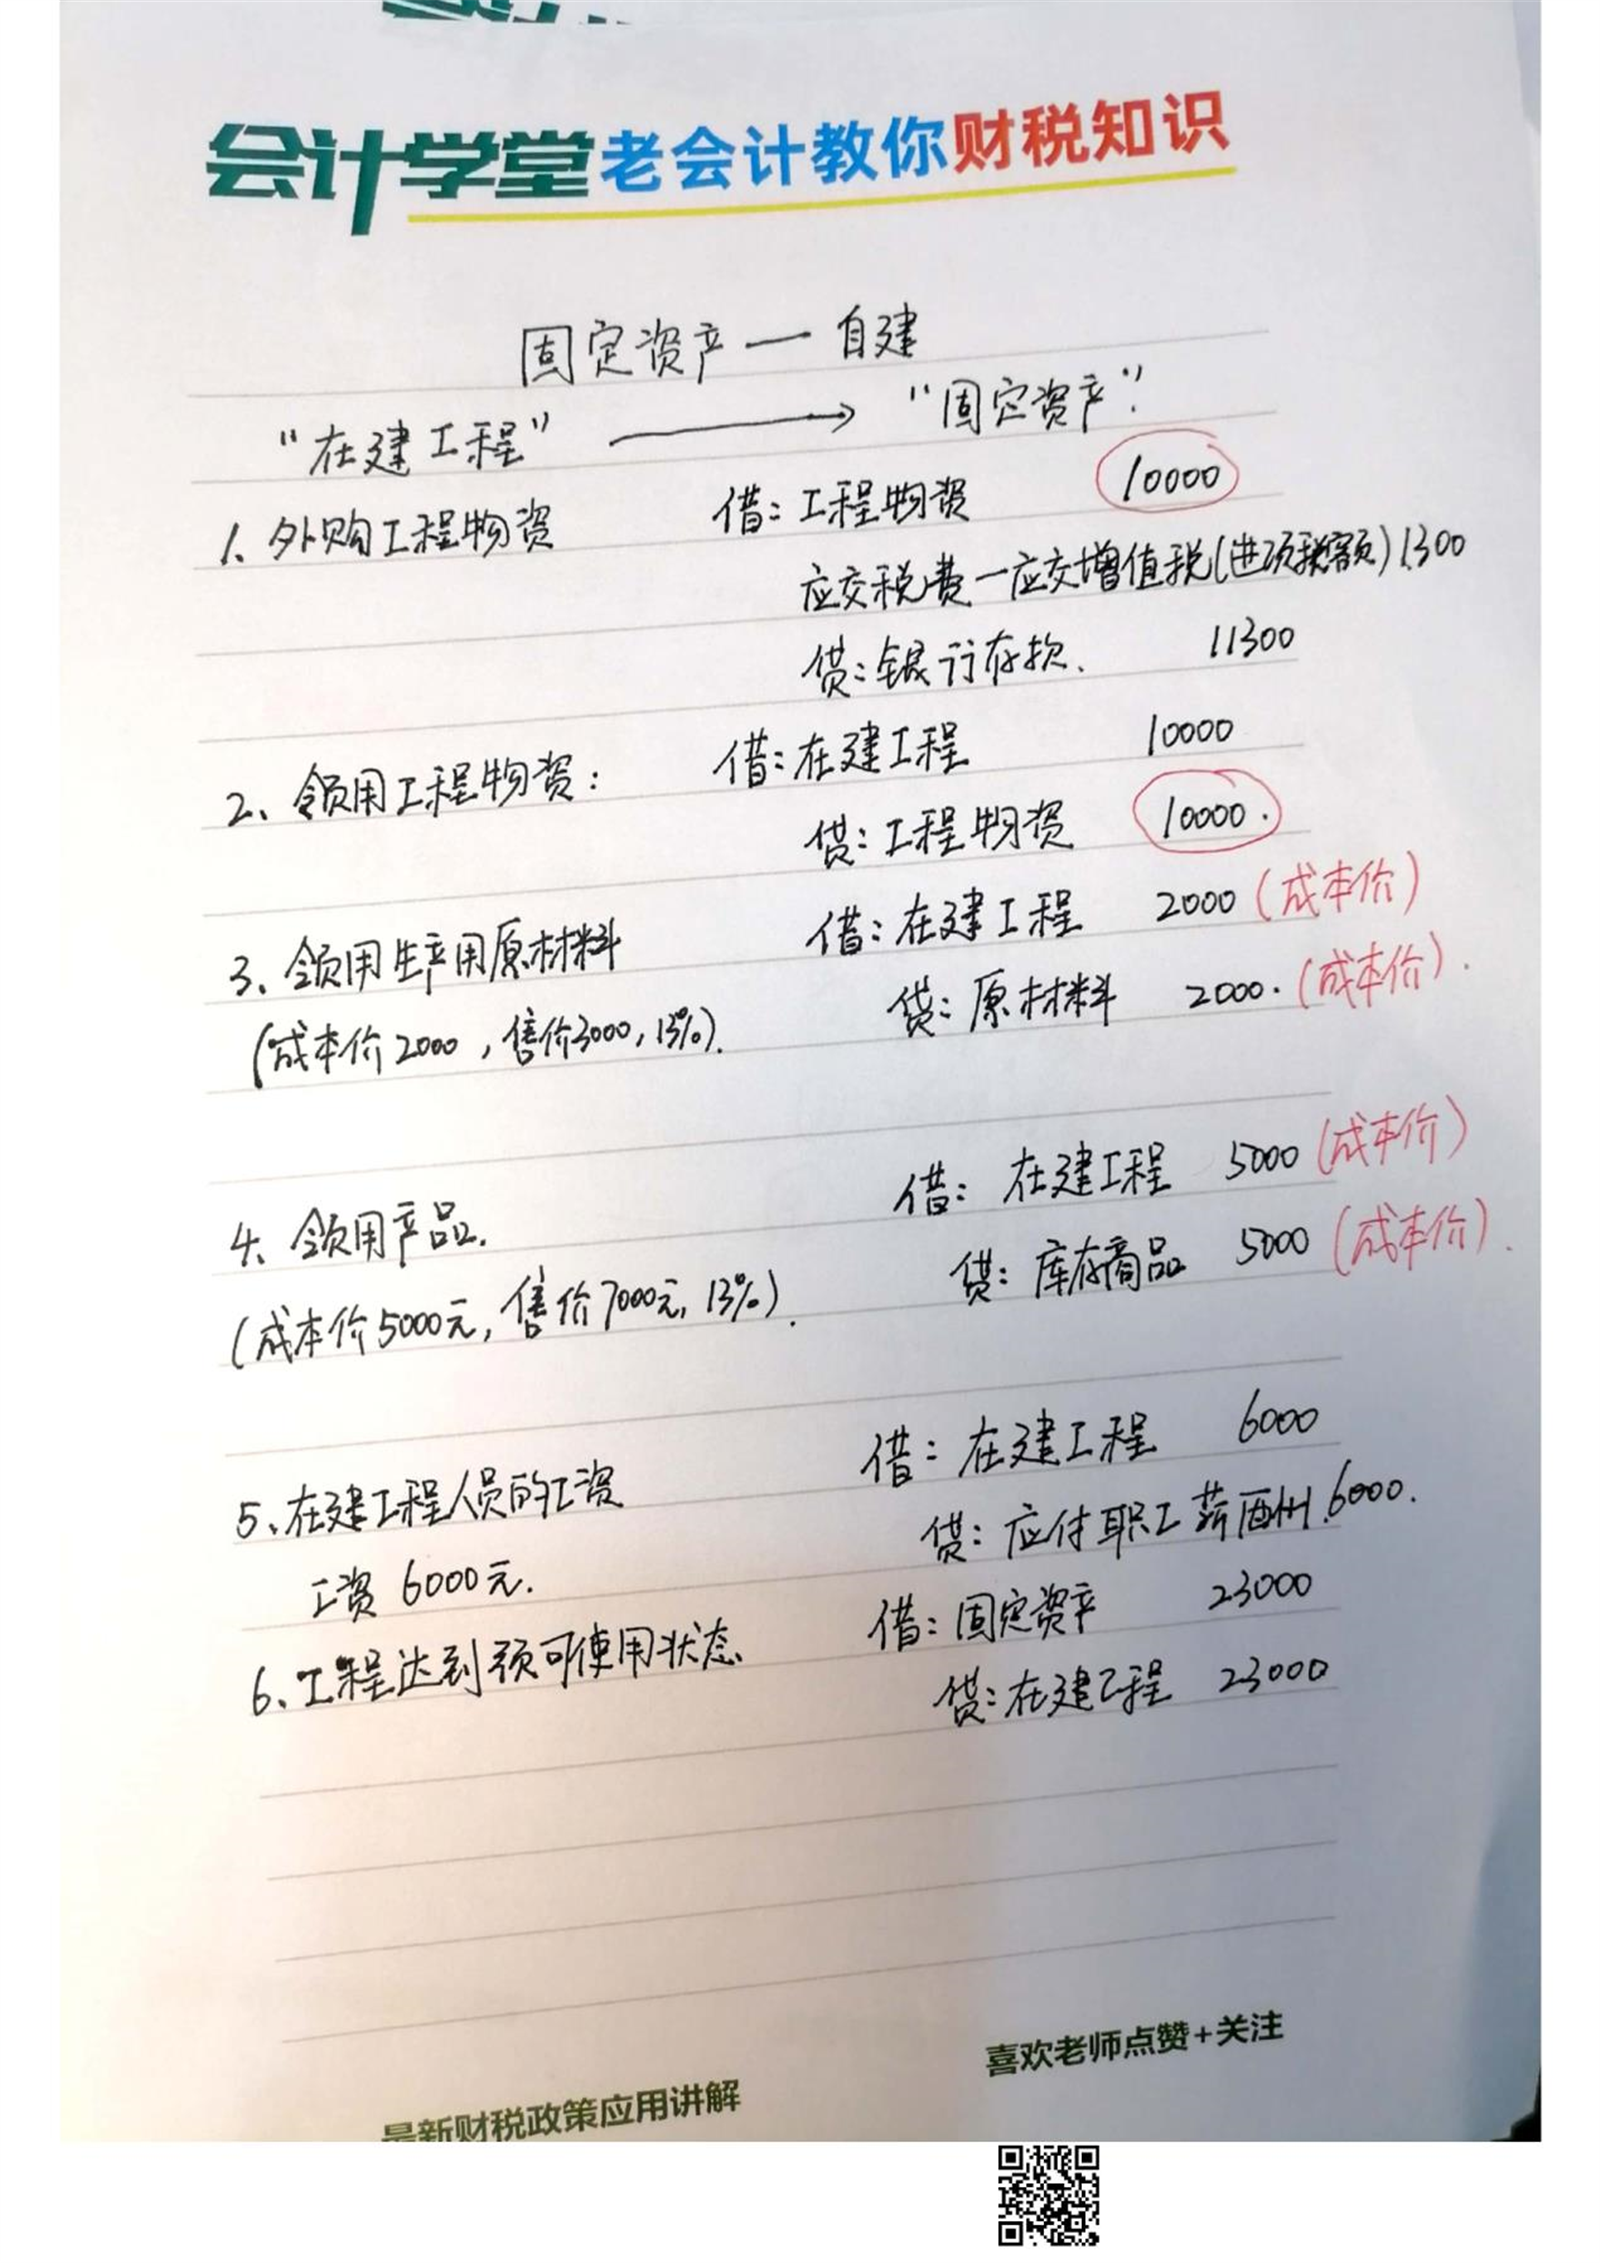 会计学堂老会计教你财税知识
固定资产—自建
"在建工程" → "固定资产".
1、外购工程物资 借:工程物资 10000
应交税费—应交增值税(进项税额)1300
贷:银行存款. 11300
2、领用工程物资: 借:在建工程 10000
贷:工程物资 10000.
3、领用生产用原材料 借:在建工程 2000(成本价)
(成本价2000,售价3000,13%). 贷:原材料 2000.(成本价).
4、领用产品. 借:在建工程 5000(成本价)
(成本价5000元,售价7000元,13%). 贷:库存商品 5000(成本价).
5、在建工程人员的工资 借:在建工程 6000
工资6000元. 贷:应付职工薪酬.6000.
6、工程达到预可使用状态 借:固定资产 23000
贷:在建工程 23000
喜欢老师点赞+关注
最新财税政策应用讲解